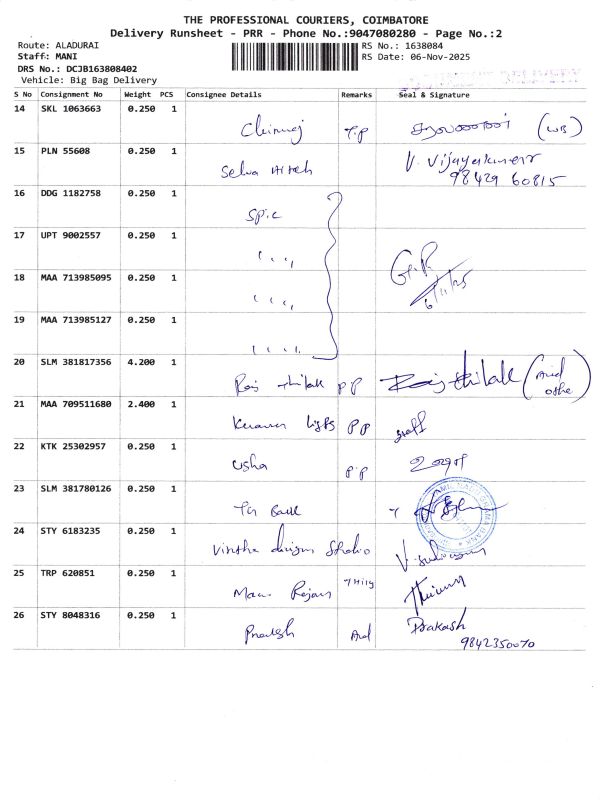 THE PROFESSIONAL COURIERS, COIMBATORE
Delivery Runsheet - PRR - Phone No.:9047080280 - Page No.:2
Route: ALADURAI
RS No.: 1638084
Staff: MANI
RS Date: 06-Nov-2025
DRS No.: DCJB163808402
Vehicle: Big Bag Delivery
S No Consignment No Weight PCS Consignee Details Remarks Seal & Signature
14 SKL 1063663 0.250 1
T.P (WB)
15 PLN 55608 0.250 1
Selva V. Vijayakumar
98429 60815
16 DDG 1182758 0.250 1
Spic
17 UPT 9002557 0.250 1
G.R
18 MAA 713985095 0.250 1
6/11/25
19 MAA 713985127 0.250 1
20 SLM 381817356 4.200 1
Raj thilak PP Raj thilak
21 MAA 709511680 2.400 1
PP staff
22 KTK 25302957 0.250 1
Usha P.P உஷா
23 SLM 381780126 0.250 1
24 STY 6183235 0.250 1
Studio
25 TRP 620851 0.250 1
Rajan
26 STY 8048316 0.250 1
Prakash
Prakash
9842350070